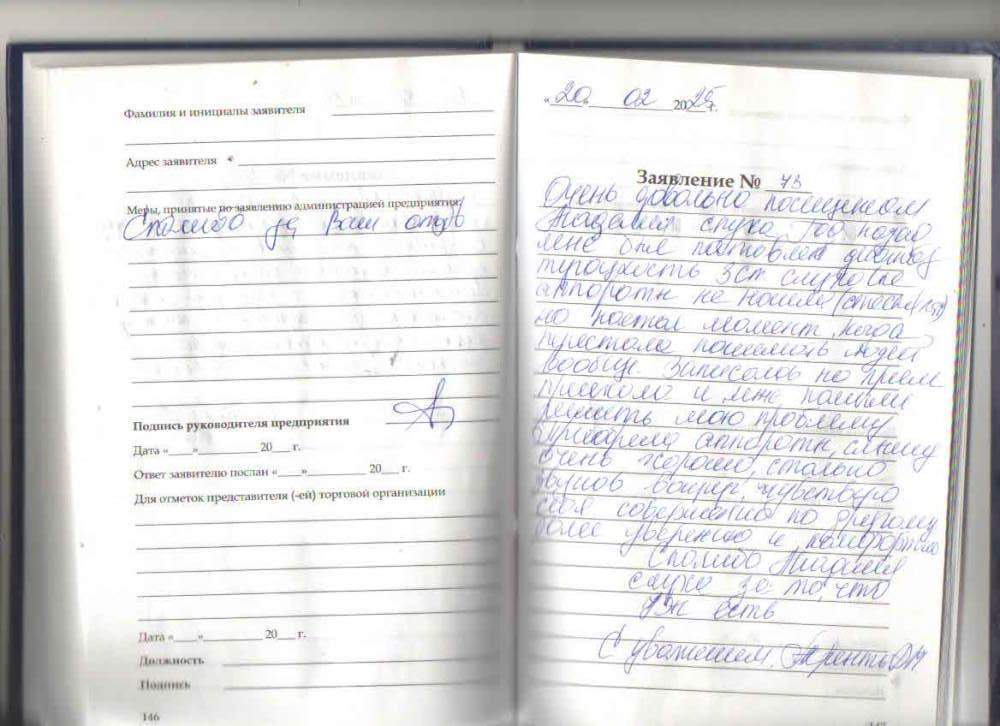 Фамилия и инициалы заявителя
Адрес заявителя
Меры, принятые по заявлению администрацией предприятия:
Спасибо за Ваш отзыв
Подпись руководителя предприятия
Дата «    »            20    г.
Ответ заявителю послан «    »            20    г.
Для отметок представителя (-ей) торговой организации
Дата «    »            20    г.
Должность
Подпись
146
«20» 02 2025г.
Заявление № 73
Очень довольна посещением
Академии слуха. Год назад
мне был поставлен диагноз
тугоухость 3ст слуховые
аппараты не носила
но настал момент, когда
перестала понимать людей
вообще. Записалась на прием
и мне помогли
решить мою проблему
аппараты, слышу
очень хорошо, столько
звуков вокруг, чувствую
себя совершенно по другому
более уверенно и комфортно
Спасибо Академия
слуха за то, что
есть
С уважением,
147